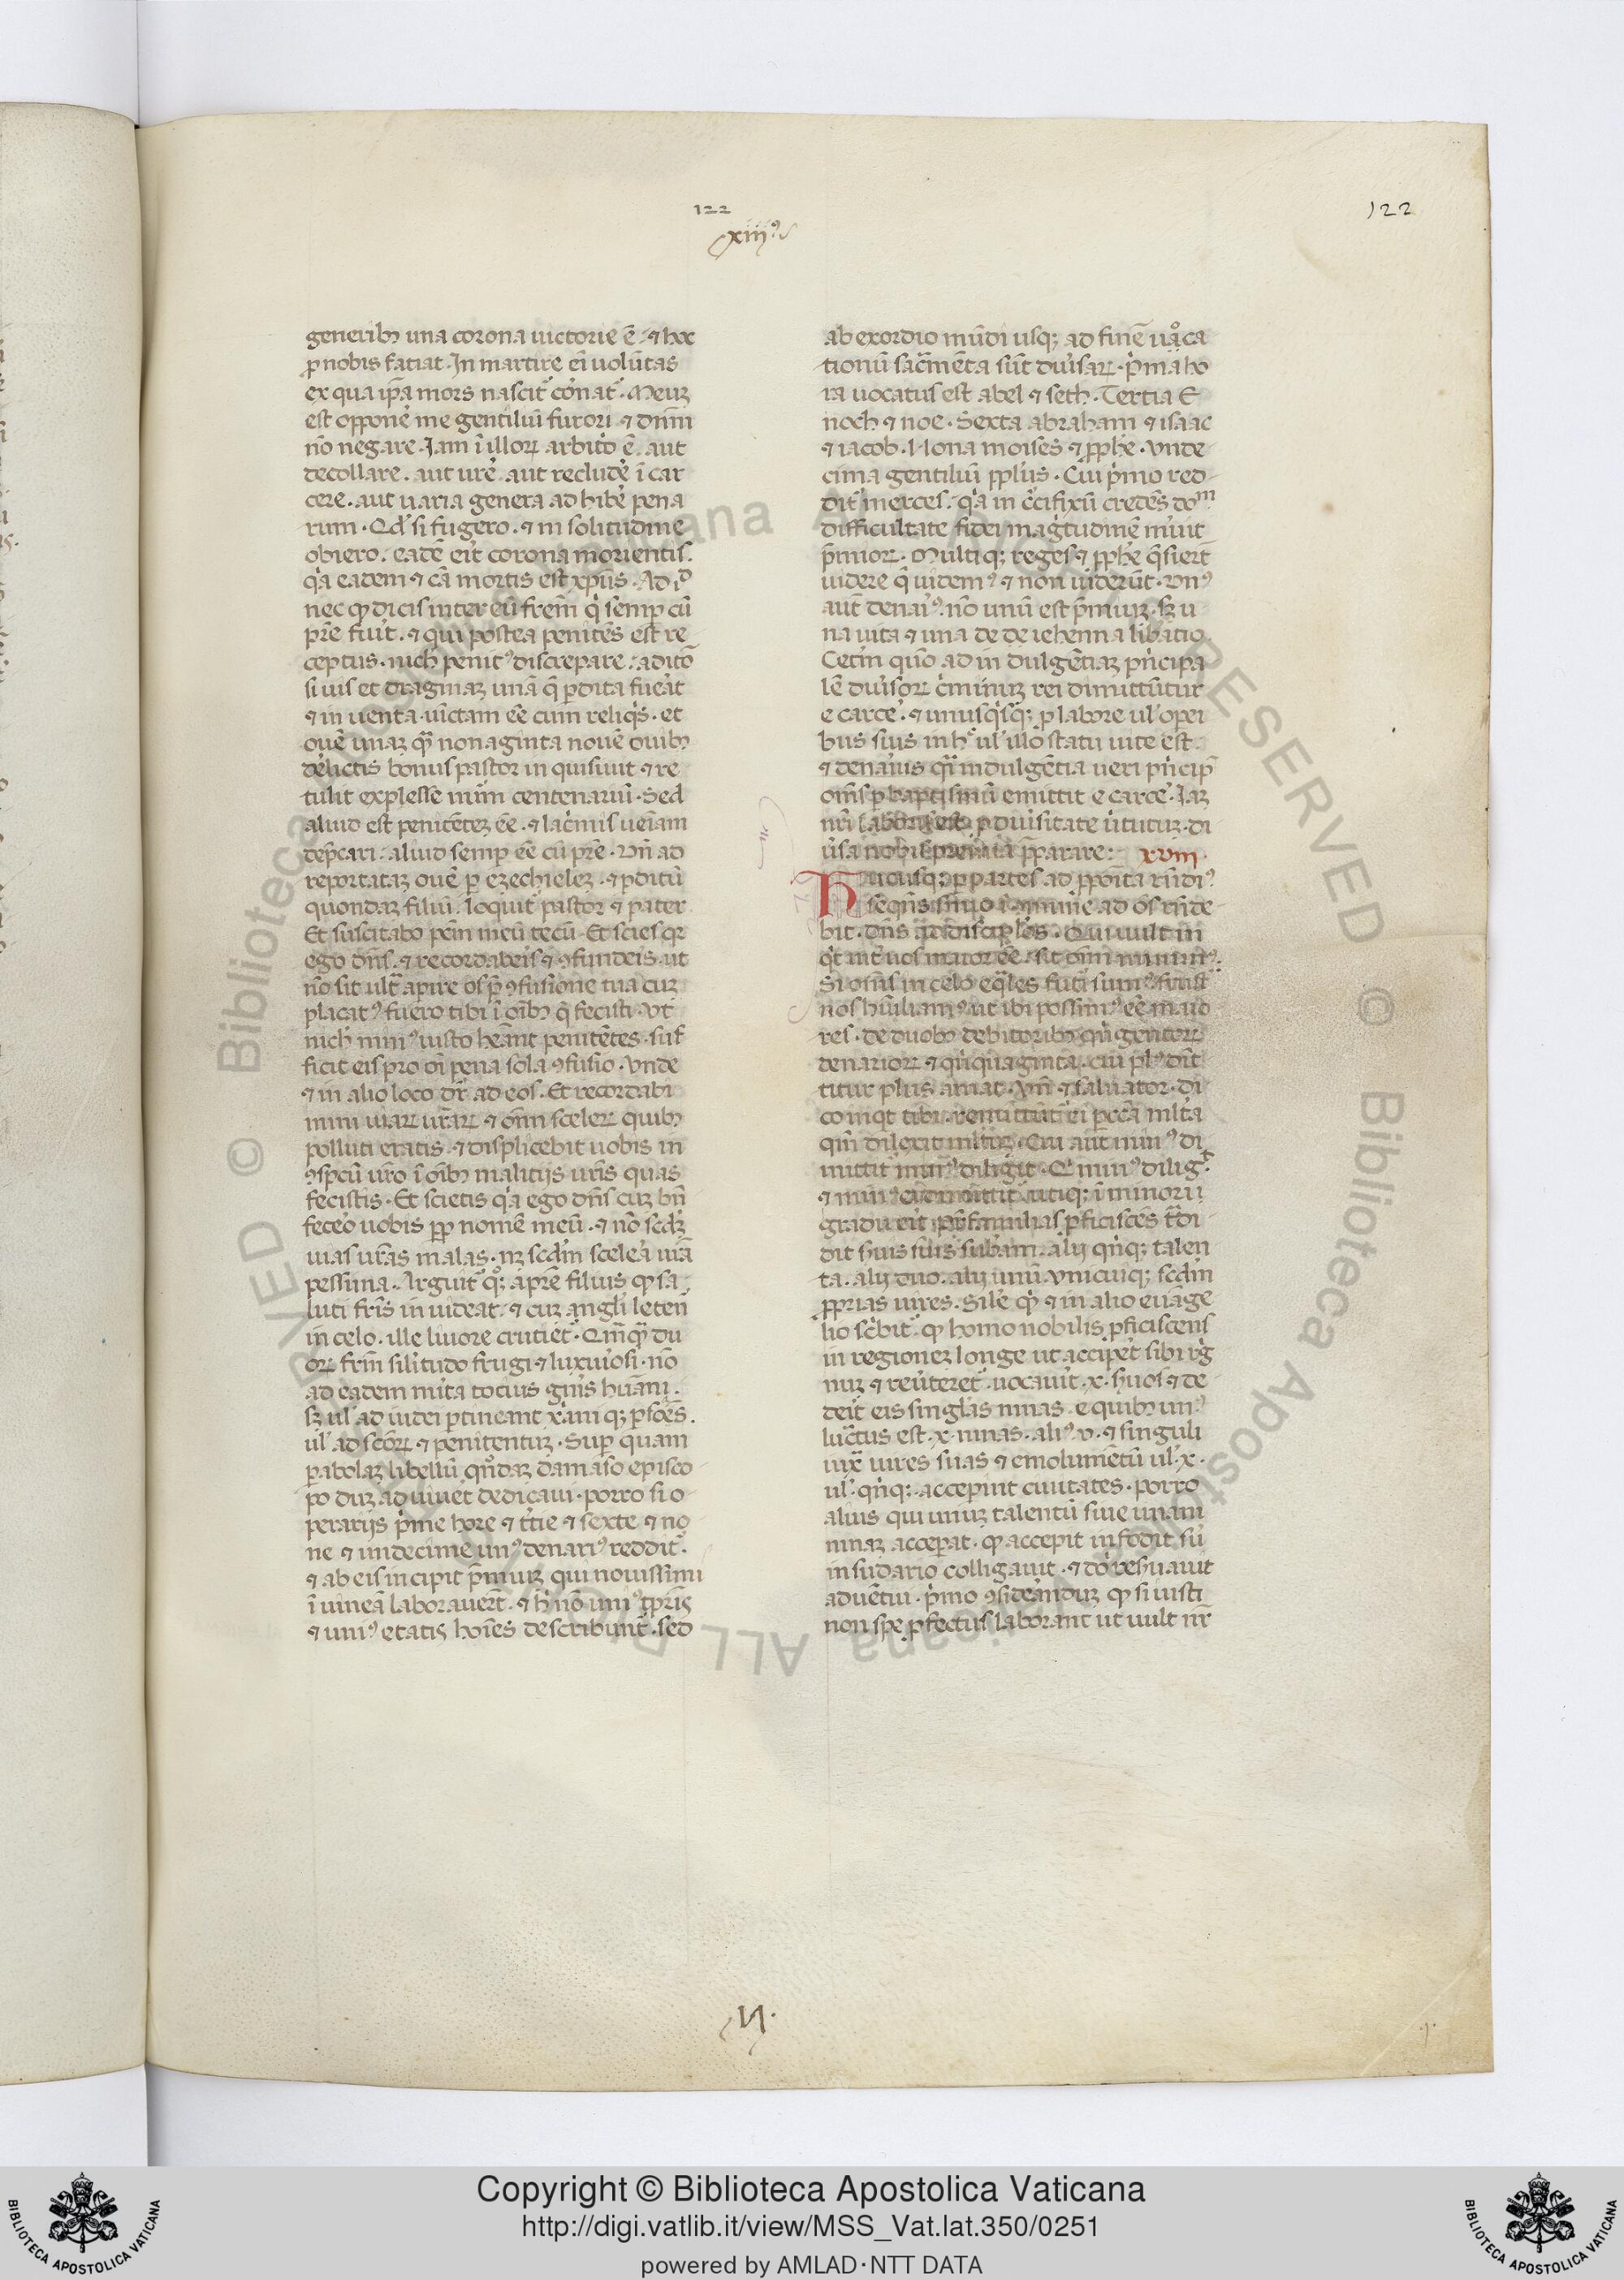 122
122
xiiiꝰ
generibꝫ una corona uictorie ē. ⁊ hoc
ꝓ nobis fatiat. In martire eī uolūtas
ex qua ip̄a mors nascit᷑ cōnat᷑. Meuꝫ
est opponē me gentiliū furori ⁊ dn̄m
nō negare. Jam ī illoꝝ arbit̓o ē. aut
decollare. aut urē aut recludē ī car
cere. aut uaria genera adhibē pena
rum. Qd̓ si fugero. ⁊ in solitudine
obiero. eadē eīt corona morientis.
q̓a eadem ⁊ cā mortis est xp̄us. Ad iᵈ
nec ꝙ dicis inter eū frēm q̓ semp cū
pr̄e fuit. ⁊ qui postea penitēs est re
ceptus. nich̓ penitꝰ discrepare. aditō
si uis et dragmaꝫ unā q̄ ꝑdita fuēat
⁊ inuenta. uīctam eē cum reliq̓s. et
ouē unaꝫ qꝫ̄ nonaginta nouē ouibꝫ
dēlictis bonus pastor inquisiuit ⁊ re
tulit explesse num̄ centenariū. Sed
aliud est penitētez eē. ⁊ lac̓mis ueīam
dep̄cari. aliud semp eē cū pr̄e. Vn̄ ad
reportataꝫ ouē ꝑ ezechielez. ⁊ ꝑditū
quondaꝫ filiū. loquit᷑ pastor ⁊ pater
Et suscitabo pem̄ meū tecū. Et scies qꝫ
ego dn̄s. ⁊ recordabeīs ⁊ ꝯfundeīs. ut
nō sit ult̄ apire os p̄ ꝯfusione tua cuꝫ
placatꝰ fuero tibi ī oībꝫ q̄ fecisti. Vt
nich̓ minꝰ iusto heāt penitētes. suf
ficit eis pro oī pena sola ꝯfusio. Vnde
⁊ in alio loco dr̄ ad eos. Et recordabi
mini uiaꝝ ur̄aꝝ ⁊ om̄ sceleꝝ quibꝫ
polluti eratis. ⁊ displicebit uobis in
ꝯspcū ur̄o ī oībꝫ malitijs ur̄is quas
fecistis. Et scietis q̓a ego dn̄s cuꝫ bn̄
feceo̓ uobis ꝓp nomē meū. ⁊ nō scd̓ꝫ
uias ur̄as malas. nꝫ scd̄m scelēa ur̄a
pessima. Arguit᷑ q̊ꝫ. apr̄e filius ꝙ sa
luti fr̄is inuideat. ⁊ cuꝫ angl̓i leten̄
in celo. ille liuore crutiet᷑. Qm̄qꝫ̄ du
oꝝ fr̄m silitudo frugi ⁊ luxuiosi. nō
ad eadem mīta tocius gn̄is hūani.
sꝫ ul̓ ad iudei ꝑtineant x̓aniqꝫ ꝑsoēs.
ul̓ ad sc̄oꝝ ⁊ penitentuꝫ. Suꝑ quam
ꝑabolaꝫ libellū qn̊daꝫ damaso episco
po duꝫ adviuet dedicaui. porro si o
perarijs p̓me hore ⁊ t̓tie ⁊ sexte ⁊ no
ne ⁊ undecime unꝰ denariꝰ reddit᷑.
⁊ ab eis incipit p̄miuꝫ qui nouissimi
ī uinea laborauer̄t. ⁊ h̓ nō uniꝰ tꝑris̄
⁊ uniꝰ etatis hoīes describunt᷑. sed
ab exordio mūdi usqꝫ ad finē uo̊ca
tionū sac̄mēta sūt diuisaꝝ. p̓ma ho
ra uocatus est abel ⁊ seth. Tertia E
noch ⁊ noe. Sexta abraham ⁊ isaac
⁊ iacob. Nona moises ⁊ ꝓphē. Vnde
cima gentiliū ppl̓us. Cui p̓mo red
dit᷑ merces. q̓a in c̄cifixū credēs doᵐ
difficultate fidei mag̓tudinē mēuit
p̄mioꝝ. Multiqꝫ reges ⁊ ꝓphē q̄sier̄t
uidere q̄ uidemꝰ ⁊ non uiderūt. Vnꝰ
aūt denaīꝰ. nō unū est p̄miuꝫ. sꝫ u
na uita ⁊ una de de iehenna libatio.
Cetīn quō ad indulgētiaꝫ pn̓cipa
lē diuīsoꝝ c̓minuꝫ rei dimittūtur
e carcē. ⁊ unusq̓sqꝫ ꝓ labore ul̓ operi
bus suis in hᶜ ul̓ illo statu uite est.
⁊ denaīus qn̄ indulgētia ueri pn̓cip̄
oīs ꝑ baptismū emittit e carcē. Jaꝫ
nr̄i laboris est ꝓ diuīsitate ūtutuꝫ. di
ūsa nobis premia p̄parare. xviii.
Hucusqꝫ ꝑ partes ad ꝓpoita rn̄diꝰ
bit. dn̄s ad discip̄los. Qui uult in
Si oīs in celo eq̄les futi sumꝰ frust᷑
nos hūiliamꝰ ut ibi possimꝰ eē maio
res. de duobꝫ debitoribꝫ qn̓gentoꝝ
denarioꝝ ⁊ qn̓quaginta. cui plꝰ dīt
titur plus amat. Vn̄ ⁊ saluator. di
co inqt tibi. remittūt᷑ ei pcc̄a ml̓ta
qm̄ dilexit multuꝫ. Cui aūt minꝰ di
mittit᷑ minꝰ diligit. Qi minꝰ diligᵗ.
⁊ minꝰ ei dimittit᷑ utiqꝫ ī minori
gradu eīt. pr̄familias ꝓficiscēs t̄di
dit suis suis s̓ubam. alij qn̓qꝫ talen
ta. alij duo. alij unū. Vnicuiqꝫ scd̄m
ꝓprias uires. Silē qꝫ ⁊ in alio euāge
lio sc̓bit᷑. ꝙ homo nobilis ꝓficiscens
in regionez longe ut accipet sibi rḡ
nuꝫ ⁊ reūteret᷑. uocauit .x. s̓uos ⁊ de
deit eis singl̓as minas. e quibꝫ unꝰ
luc̓tus est .x. minas. aliꝰ .v. ⁊ singuli
iux̄ uires suas ⁊ emolumētū ul̓ .x.
ul̓ qn̓qꝫ. acceꝑint ciuitates. porro
alius qui unuꝫ talentū siue unam
minaꝫ acceꝑat. ꝙ accepit infodit sū
in sudario colligauit. ⁊ dō res̓uauit
aduētui. p̓mo ꝯsideānduꝫ ꝙ si iusti
non spe ꝓfectus laborant ut uult nr̄
N.
Copyright © Biblioteca Apostolica Vaticana
http://digi.vatlib.it/view/MSS_Vat.lat.350/0251
powered by AMLAD·NTT DATA
BIBLIOTECA APOSTOLICA VATICANA
BIBLIOTECA APOSTOLICA VATICANA